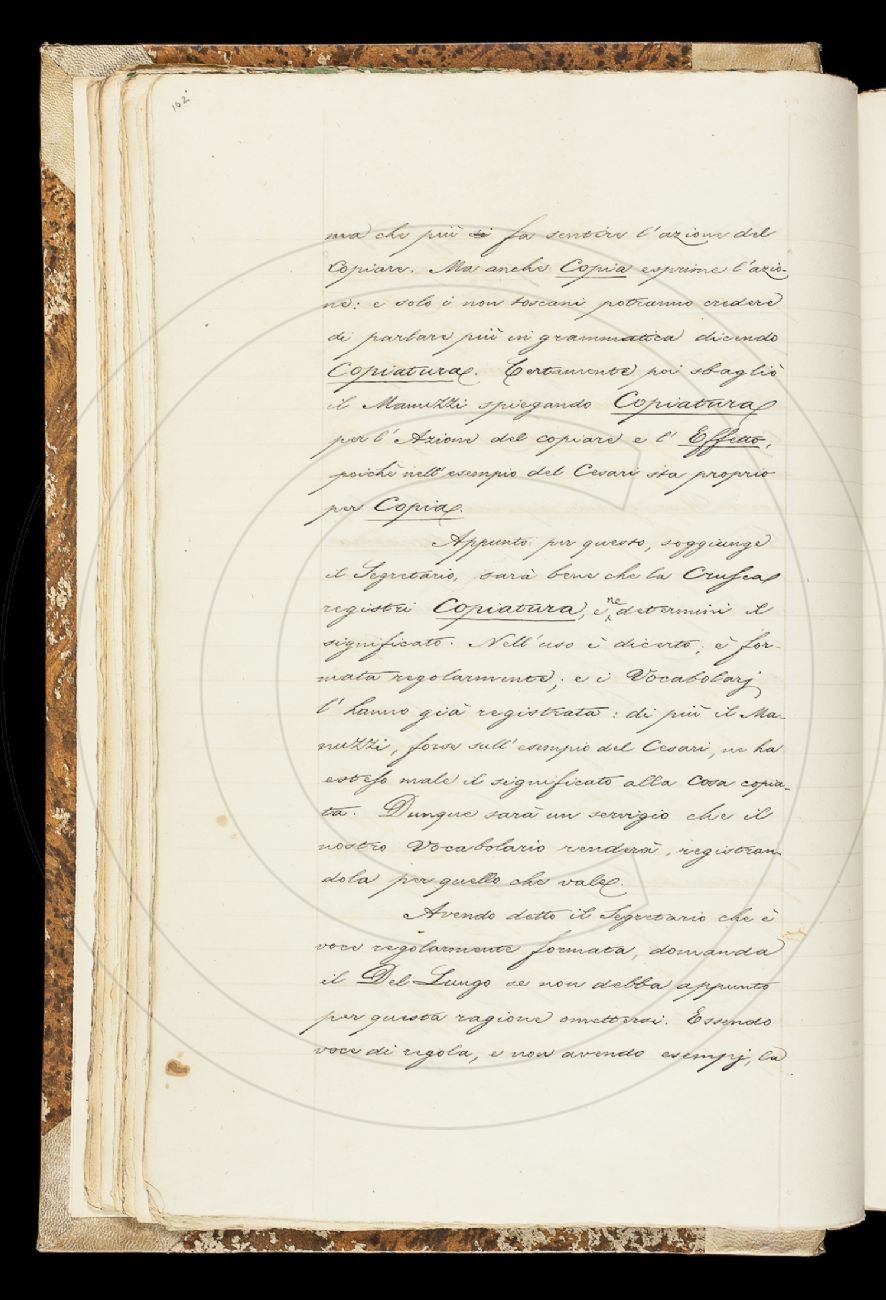 102
ma che più si fa sentire l'azione del
Copiare. Ma anche Copia esprime l'azio-
ne: e solo i non toscani potranno credere
di parlare più in grammatica dicendo
Copiatura. Certamente poi sbagliò
il Manuzzi spiegando Copiatura
per l'Azione del copiare e l'Effetto,
poichè nell'esempio del Cesari sta proprio
per Copia.
Appunto per questo, soggiunge
il Segretario, sarà bene che la Crusca
registri Copiatura, e ne determini il
significato. Nell'uso è di certo, è for-
mata regolarmente; e i Vocabolarj
l'hanno già registrata: di più il Ma-
nuzzi, forse sull'esempio del Cesari, ne ha
esteso male il significato alla cosa copia-
ta. Dunque sarà un servigio che il
nostro Vocabolario renderà, registran-
dola per quello che vale.
Avendo detto il Segretario che è
voce regolarmente formata, domanda
il Del Lungo se non debba appunto
per questa ragione omettersi. Essendo
voce di regola, e non avendo esempj, la